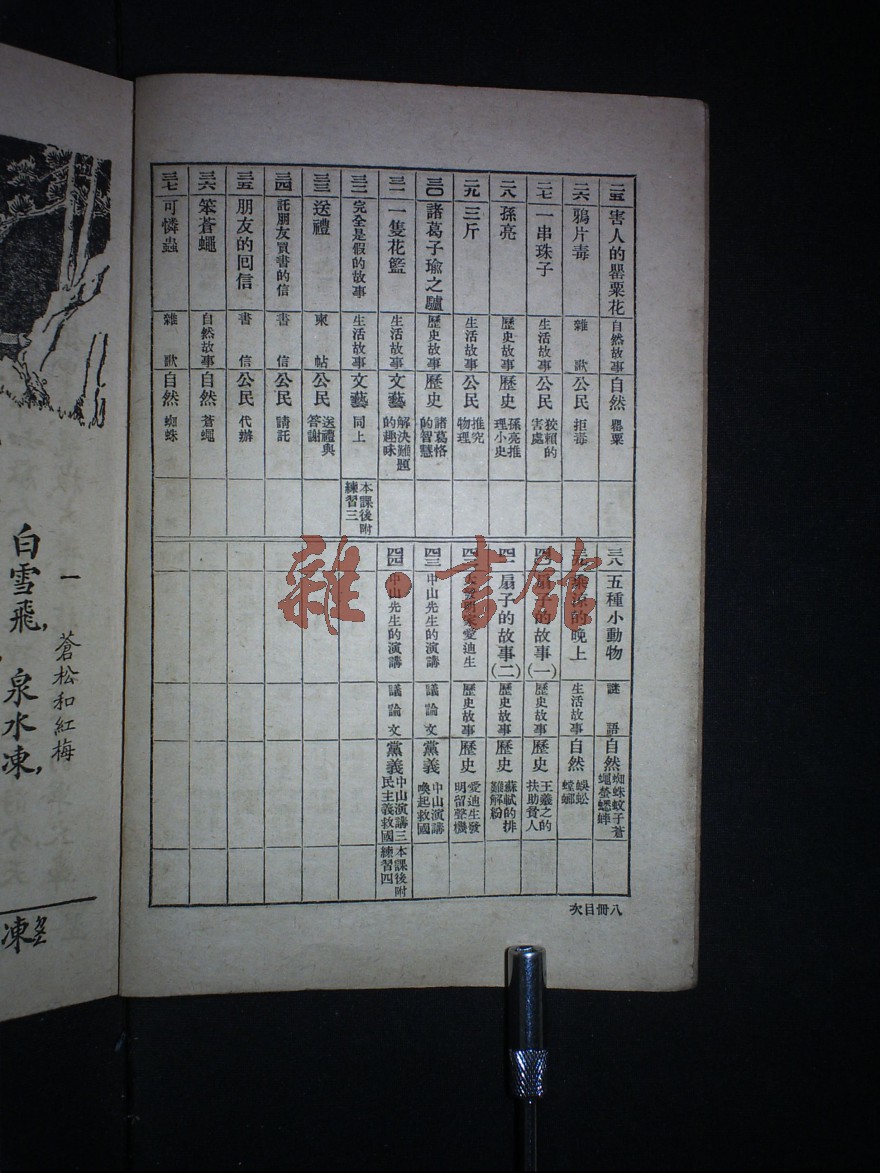 二五 害人的罌粟花 自然故事 自然 罌粟
二六 鴉片毒 雜歌 公民 拒毒
二七 一串珠子 生活故事 公民 狡賴的害處
二八 孫亮 歷史故事 歷史 孫亮推理小史
二九 三斤 生活故事 公民 推究物理
三〇 諸葛子瑜之驢 歷史故事 歷史 諸葛恪的智慧
三一 一隻花籃 生活故事 文藝 解決難題的趣味
三二 完全是假的故事 生活故事 文藝 同上 本課後附練習三
三三 送禮 柬帖 公民 送禮與答謝
三四 託朋友買書的信 書信 公民 請託
三五 朋友的回信 書信 公民 代辦
三六 笨蒼蠅 自然故事 自然 蒼蠅
三七 可憐蟲 雜歌 自然 蜘蛛
三八 五種小動物 謎語 自然 蜘蛛蚊子蒼蠅螢蟋蟀
三九 乘涼的晚上 生活故事 自然 蜈蚣螳螂
四〇 扇子的故事(一) 歷史故事 歷史 王羲之的扶助貧人
四一 扇子的故事(二) 歷史故事 歷史 蘇軾的排難解紛
四二 大發明家愛迪生 歷史故事 歷史 愛迪生發明留聲機
四三 中山先生的演講 議論文 黨義 中山演講喚起救國
四四 中山先生的演講 議論文 黨義 中山演講三民主義救國 本課後附練習四
八冊目次
雜·書館
一 蒼松和紅梅
白雪飛，泉水凍，
凍